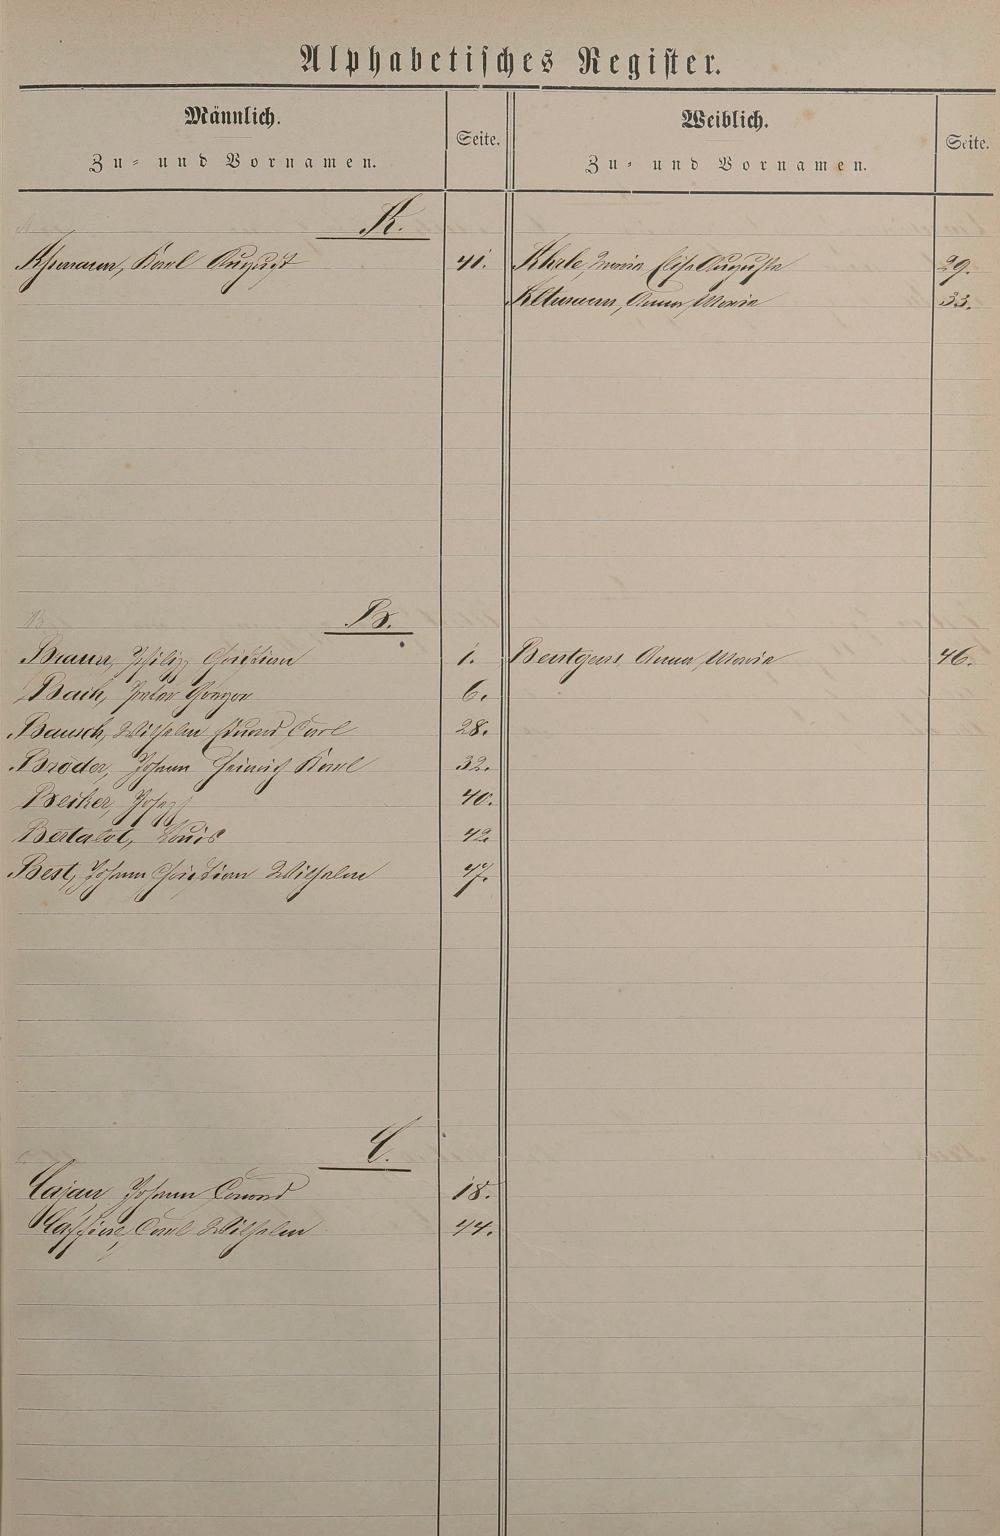 Alphabetisches Register.
Männlich.
Zu- und Vornamen.
Seite.
Weiblich.
Zu- und Vornamen.
Seite.
A.
Karl August 41.
Maria Elisa Augusta 29.
Altmann, Anna Maria 33.
B.
Braun, Philipp Christian 1.
Bach, Peter Gregor 6.
Bausch, Wilhelm Eduard Carl 28.
Broder, Johann Heinrich Karl 32.
Becker, Joseph 40.
Bertalot, Louis 42.
Best, Johann Christian Wilhelm 47.
Bentgens, Anna Maria 46.
C.
Cajan Johann Conrad 18.
Carl Wilhelm 44.